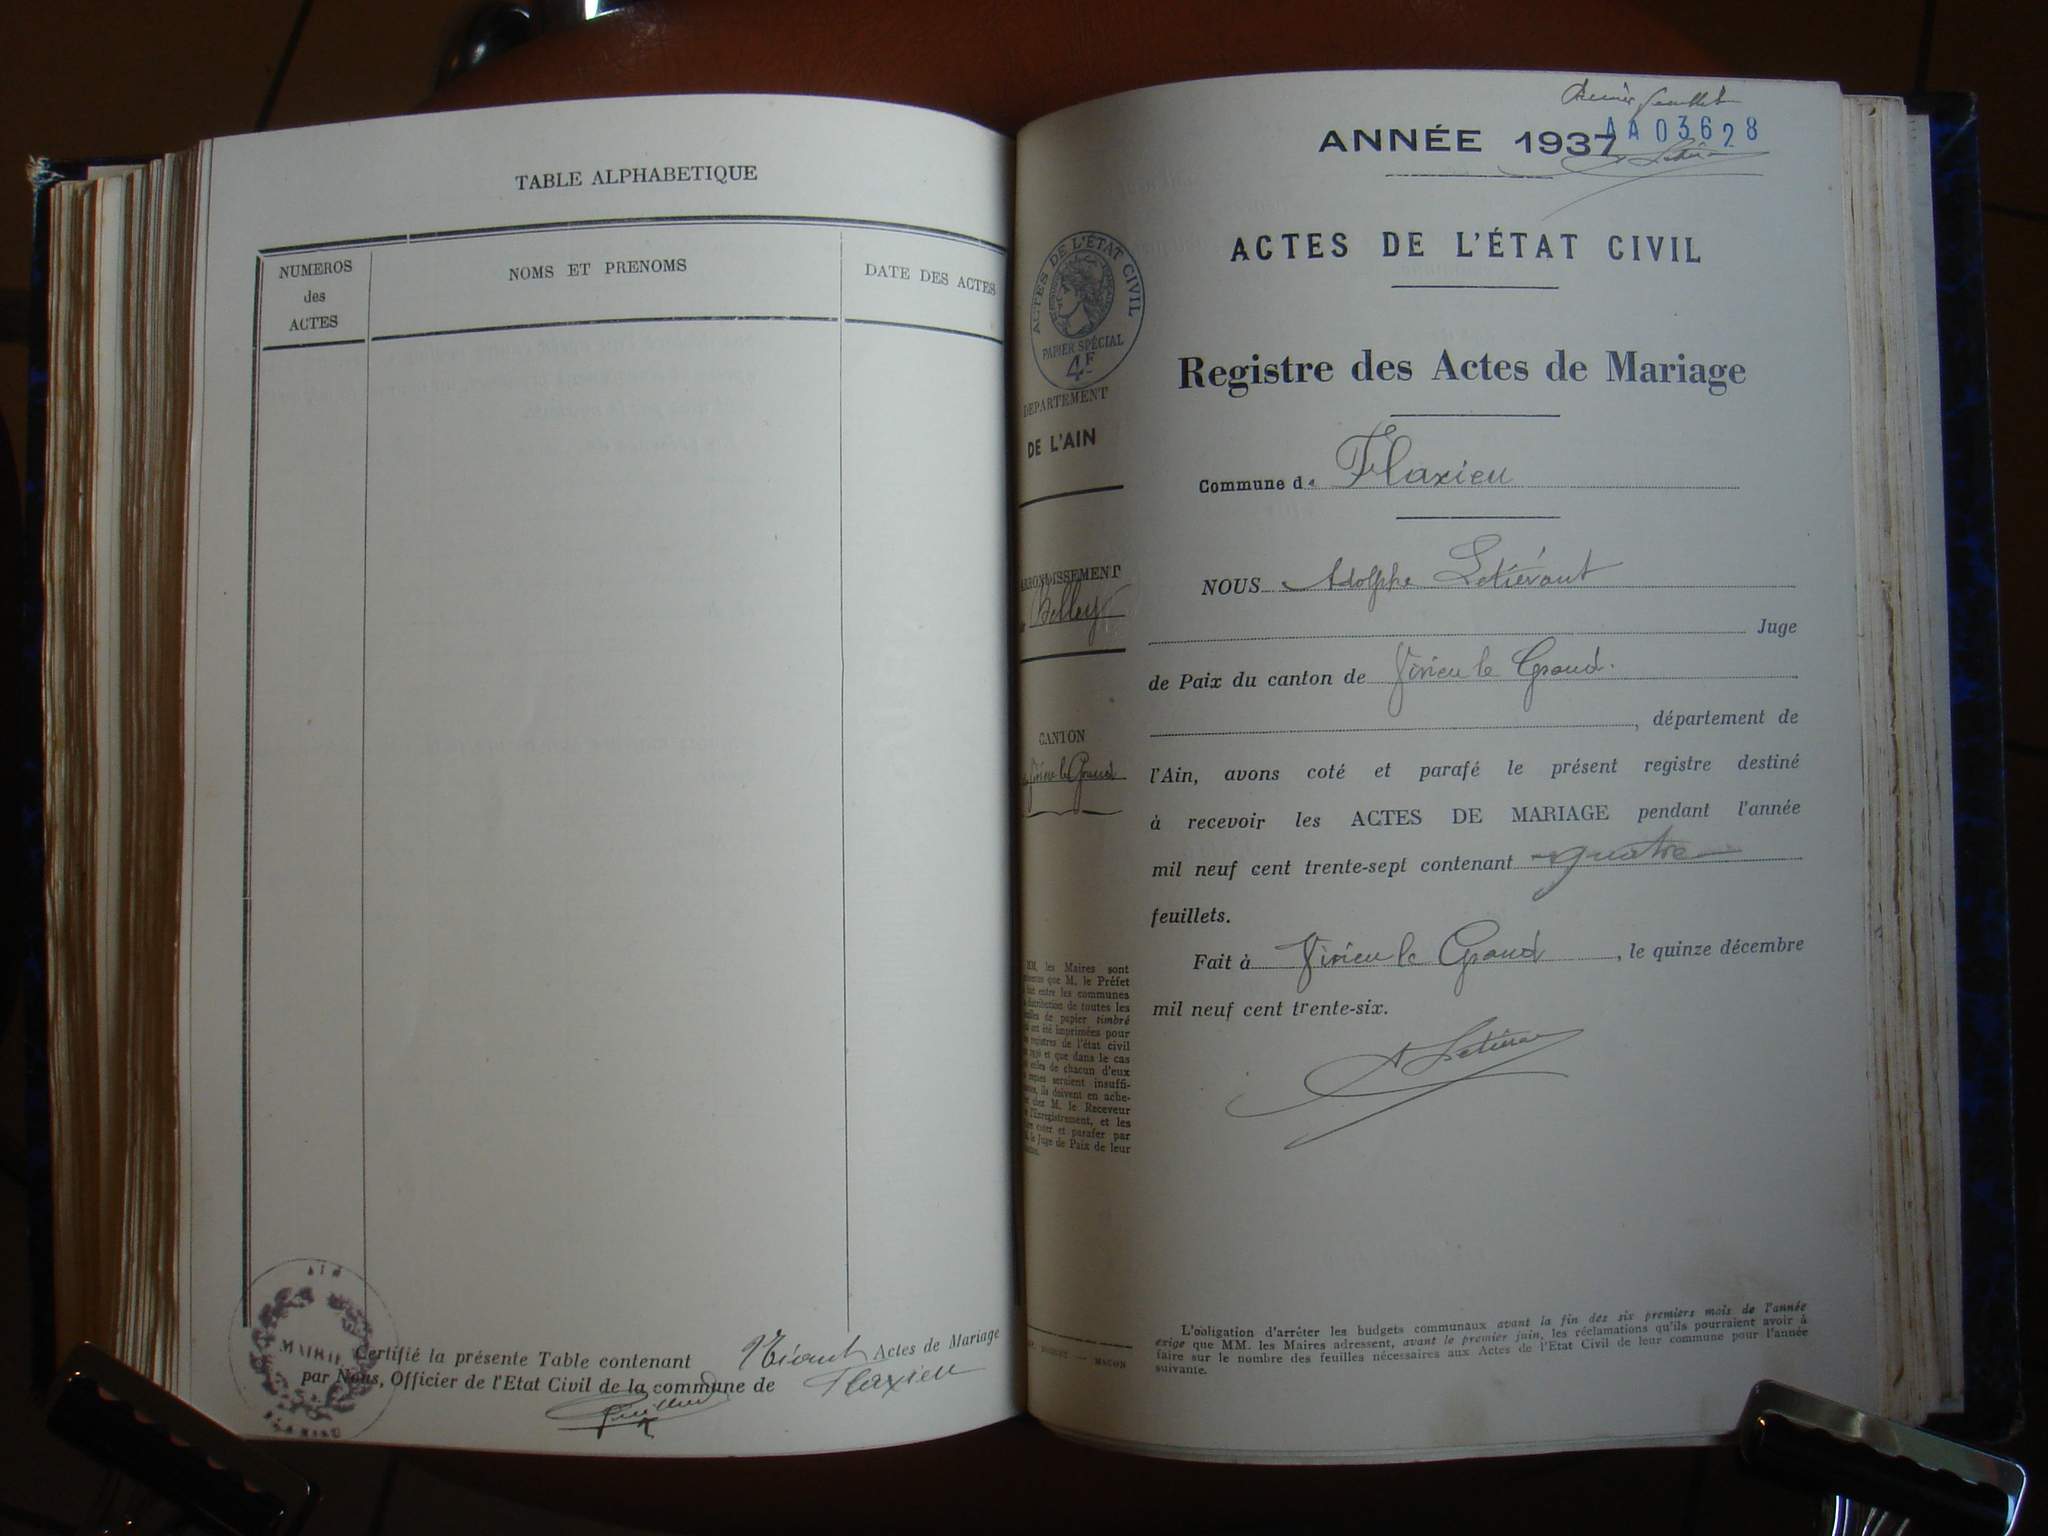 TABLE ALPHABETIQUE
NUMEROS
des
ACTES
NOMS ET PRENOMS
DATE DES ACTES
AIN
MAIRIE
FLAXIEU
Certifié la présente Table contenant Néant Actes de Mariage
par Nous, Officier de l'Etat Civil de la commune de Flaxieu
AA03628
ANNÉE 1937
ACTES DE L'ÉTAT CIVIL
ACTES DE L'ÉTAT CIVIL
PAPIER SPÉCIAL
4F
Registre des Actes de Mariage
DEPARTEMENT
DE L'AIN
Commune de Flaxieu
ARRONDISSEMENT
Belley
NOUS Adolphe Letiévant
Juge
de Paix du canton de Virieu le Grand.
, département de
CANTON
Virieu le Grand
l'Ain, avons coté et parafé le présent registre destiné
à recevoir les ACTES DE MARIAGE pendant l'année
mil neuf cent trente-sept contenant quatre
feuillets.
Fait à Virieu le Grand, le quinze décembre
mil neuf cent trente-six.
MM. les Maires sont
que M. le Préfet
fait entre les communes
distribution de toutes les
feuilles de papier timbré
qui ont été imprimées pour
les registres de l'état civil
en 1936 et que dans le cas
où celles de chacun d'eux
reçues seraient insuffi-
santes, ils doivent en ache-
ter chez M. le Receveur
de l'Enregistrement, et les
faire coter et parafer par
M. le Juge de Paix de leur
canton.
A Letiévan
MACON
L'obligation d'arrêter les budgets communaux avant la fin des six premiers mois de l'année
exige que MM. les Maires adressent, avant le premier juin, les réclamations qu'ils pourraient avoir à
faire sur le nombre des feuilles nécessaires aux Actes de l'Etat Civil de leur commune pour l'année
suivante.